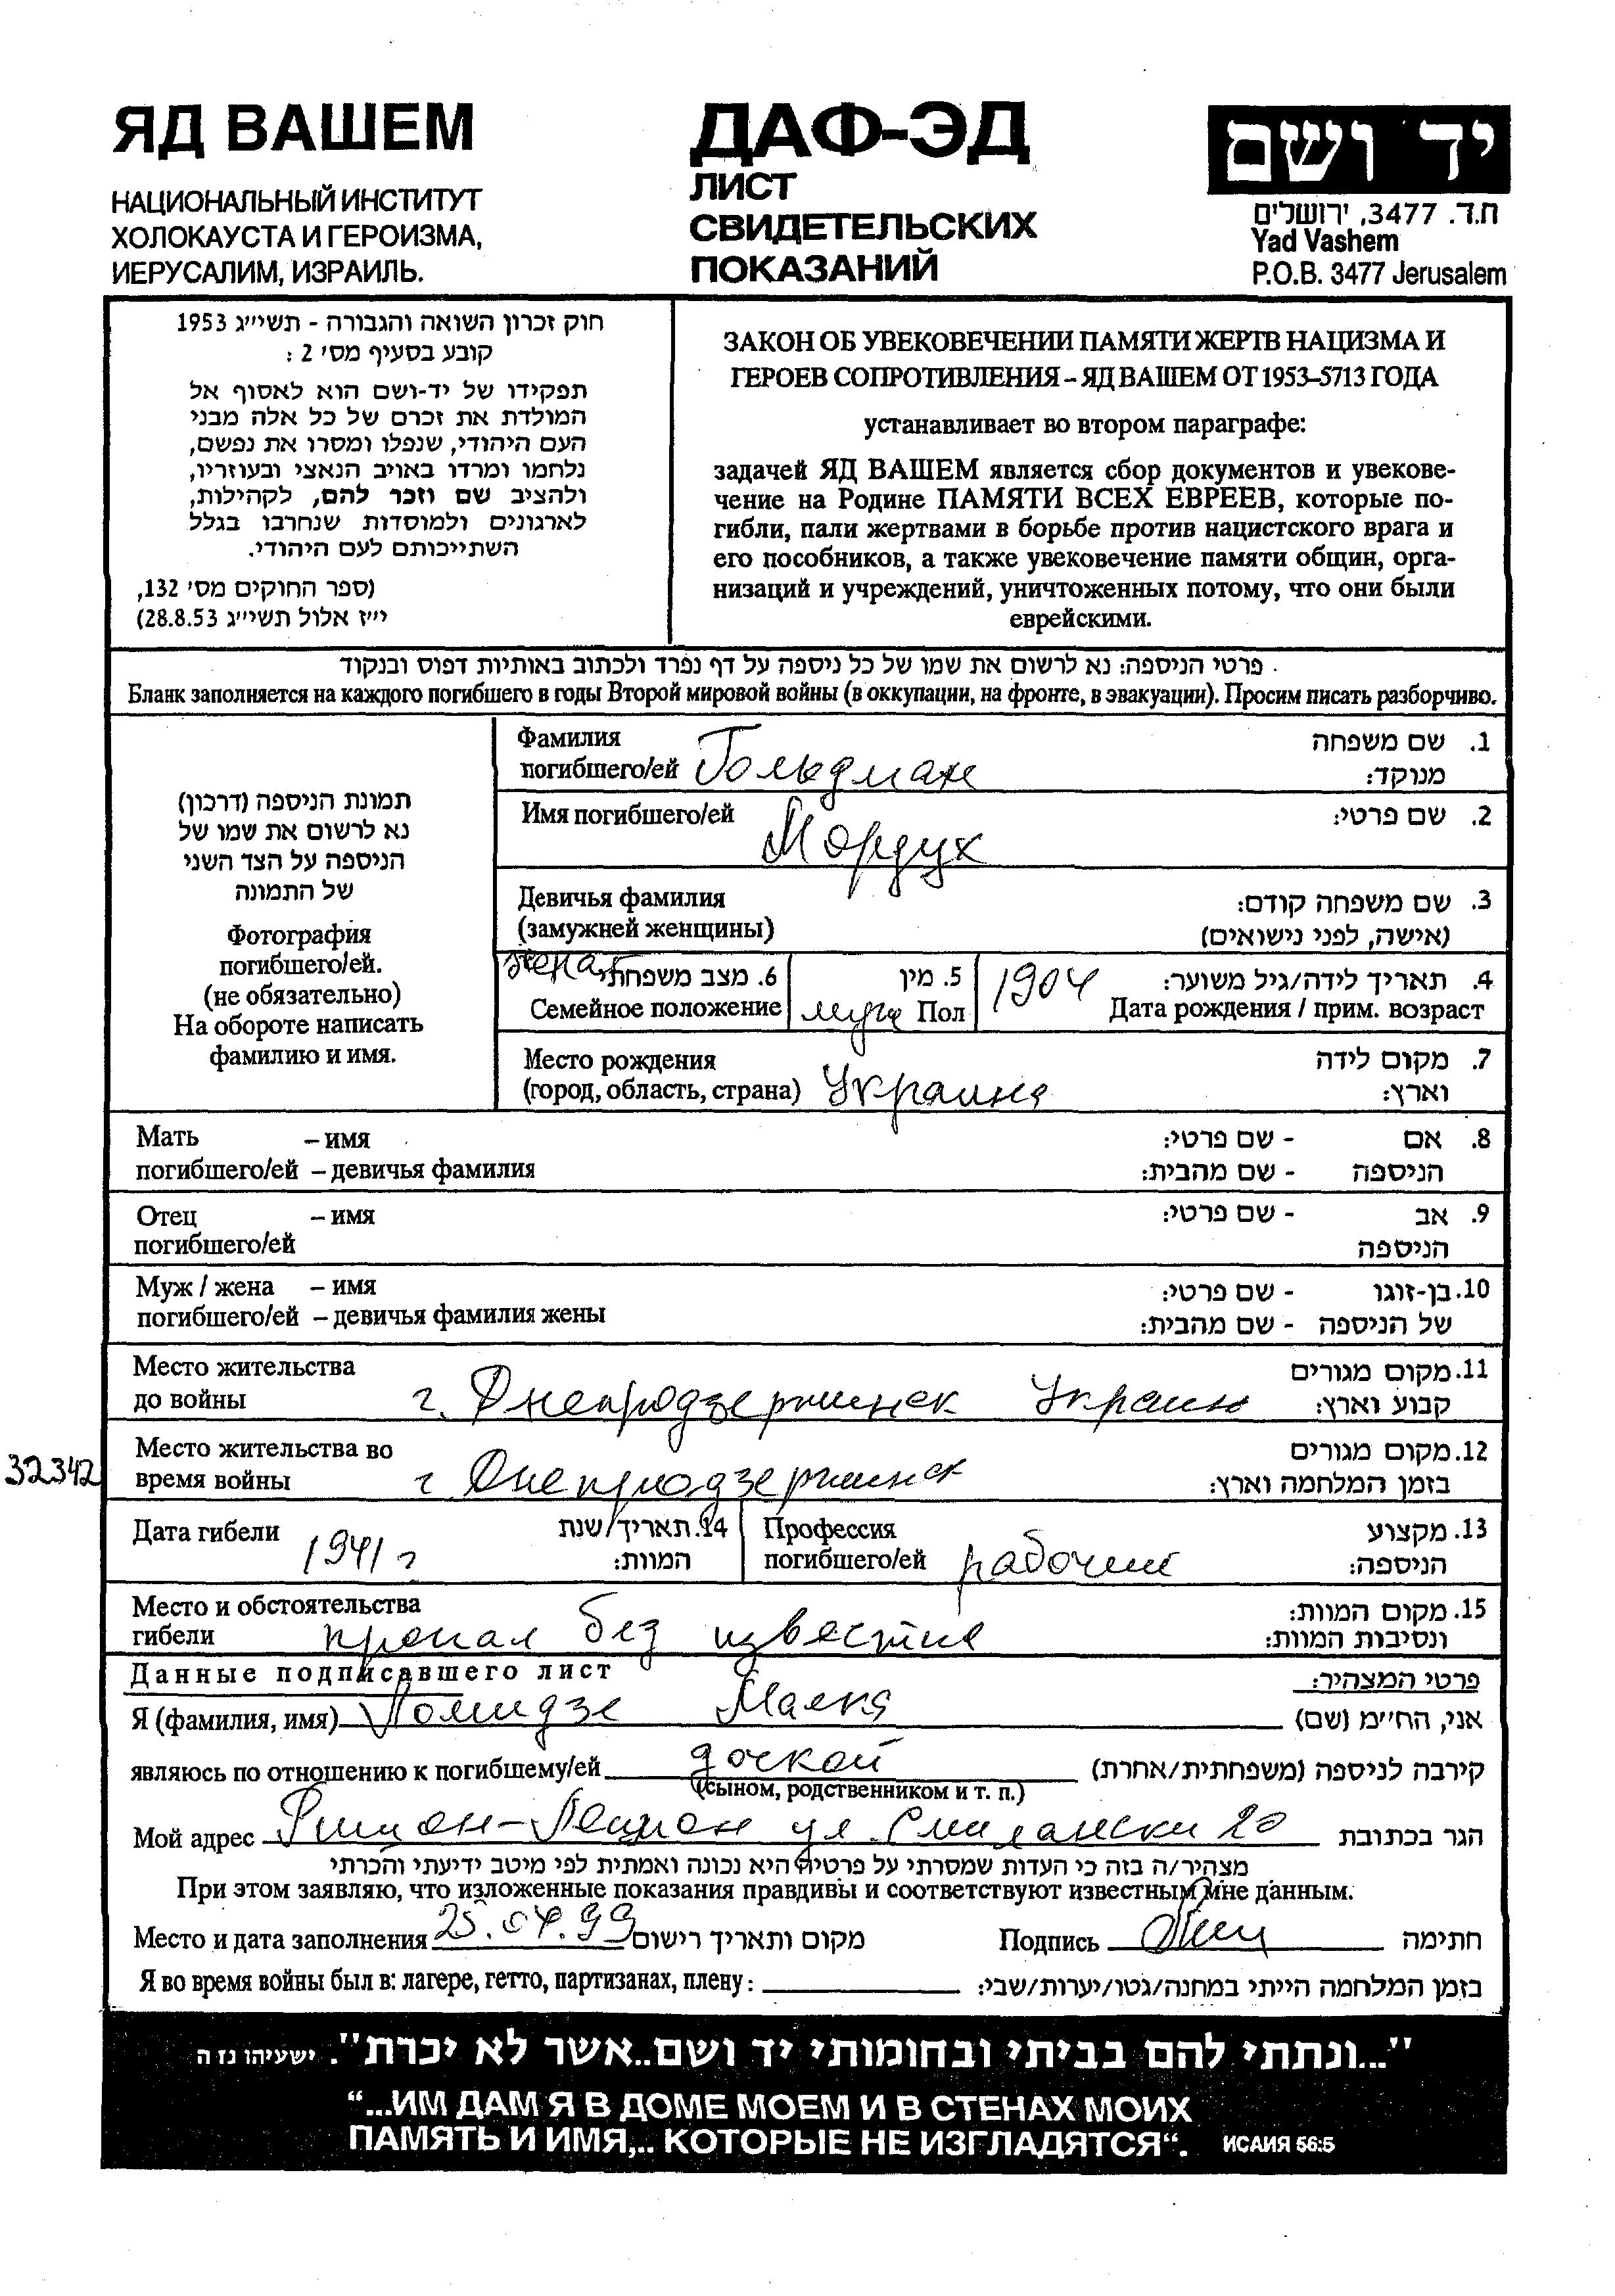 ЯД ВАШЕМ
НАЦИОНАЛЬНЫЙ ИНСТИТУТ
ХОЛОКАУСТА И ГЕРОИЗМА,
ИЕРУСАЛИМ, ИЗРАИЛЬ.
ДАФ-ЭД
ЛИСТ
СВИДЕТЕЛЬСКИХ
ПОКАЗАНИЙ
יד ושם
ת.ד. 3477, ירושלים
Yad Vashem
P.O.B. 3477 Jerusalem
חוק זכרון השואה והגבורה - תשי״ג 1953
קובע בסעיף מס׳ 2 :
תפקידו של יד-ושם הוא לאסוף אל
המולדת את זכרם של כל אלה מבני
העם היהודי, שנפלו ומסרו את נפשם,
נלחמו ומרדו באויב הנאצי ובעוזריו,
ולהציב שם וזכר להם, לקהילות,
לארגונים ולמוסדות שנחרבו בגלל
השתייכותם לעם היהודי.
(ספר החוקים מס׳ 132,
י״ז אלול תשי״ג 28.8.53)
ЗАКОН ОБ УВЕКОВЕЧЕНИИ ПАМЯТИ ЖЕРТВ НАЦИЗМА И
ГЕРОЕВ СОПРОТИВЛЕНИЯ – ЯД ВАШЕМ ОТ 1953–5713 ГОДА
устанавливает во втором параграфе:
задачей ЯД ВАШЕМ является сбор документов и увекове-
чение на Родине ПАМЯТИ ВСЕХ ЕВРЕЕВ, которые по-
гибли, пали жертвами в борьбе против нацистского врага и
его пособников, а также увековечение памяти общин, орга-
низаций и учреждений, уничтоженных потому, что они были
еврейскими.
פרטי הניספה: נא לרשום את שמו של כל ניספה על דף נפרד ולכתוב באותיות דפוס ובנקוד
Бланк заполняется на каждого погибшего в годы Второй мировой войны (в оккупации, на фронте, в эвакуации). Просим писать разборчиво.
תמונת הניספה (דרכון)
נא לרשום את שמו של
הניספה על הצד השני
של התמונה
Фотография
погибшего/ей.
(не обязательно)
На обороте написать
фамилию и имя.
Фамилия 1. שם משפחה
погибшего/ей Гольдман מנוקד:
Имя погибшего/ей Мордух 2. שם פרטי:
Девичья фамилия 3. שם משפחה קודם:
(замужней женщины) (אישה, לפני נישואים)
женат 6. מצב משפחתי 5. מין 1904 4. תאריך לידה/גיל משוער:
Семейное положение муж Пол Дата рождения / прим. возраст
Место рождения 7. מקום לידה
(город, область, страна) Украина וארץ:
Мать – имя 8. אם - שם פרטי:
погибшего/ей – девичья фамилия הניספה - שם מהבית:
Отец – имя 9. אב - שם פרטי:
погибшего/ей הניספה
Муж / жена – имя 10. בן-זוגו - שם פרטי:
погибшего/ей – девичья фамилия жены של הניספה - שם מהבית:
Место жительства 11. מקום מגורים
до войны г. Днепродзержинск Украина קבוע וארץ:
Место жительства во 12. מקום מגורים
32342 время войны г Днепродзержинск בזמן המלחמה וארץ:
Дата гибели 14. תאריך/שנת Профессия 13. מקצוע
1941 г המוות: погибшего/ей рабочий הניספה:
Место и обстоятельства 15. מקום המוות:
гибели пропал без известия ונסיבות המוות:
Данные подписавшего лист פרטי המצהיר:
Я (фамилия, имя) Ломидзе Малка אני, הח״מ (שם)
являюсь по отношению к погибшему/ей дочкой קירבה לניספה (משפחתית/אחרת)
(сыном, родственником и т. п.)
Мой адрес Ришон-Лецион ул. Смилански 20 הגר בכתובת
מצהיר/ה בזה כי העדות שמסרתי על פרטיה היא נכונה ואמתית לפי מיטב ידיעתי והכרתי
При этом заявляю, что изложенные показания правдивы и соответствуют известным мне данным.
Место и дата заполнения 25.04.99 מקום ותאריך רישום Подпись חתימה
Я во время войны был в: лагере, гетто, партизанах, плену: בזמן המלחמה הייתי במחנה/גטו/יערות/שבי:
"...ונתתי להם בביתי ובחומותי יד ושם..אשר לא יכרת". ישעיהו נז ה
“...ИМ ДАМ Я В ДОМЕ МОЕМ И В СТЕНАХ МОИХ
ПАМЯТЬ И ИМЯ,.. КОТОРЫЕ НЕ ИЗГЛАДЯТСЯ“. ИСАИЯ 56:5